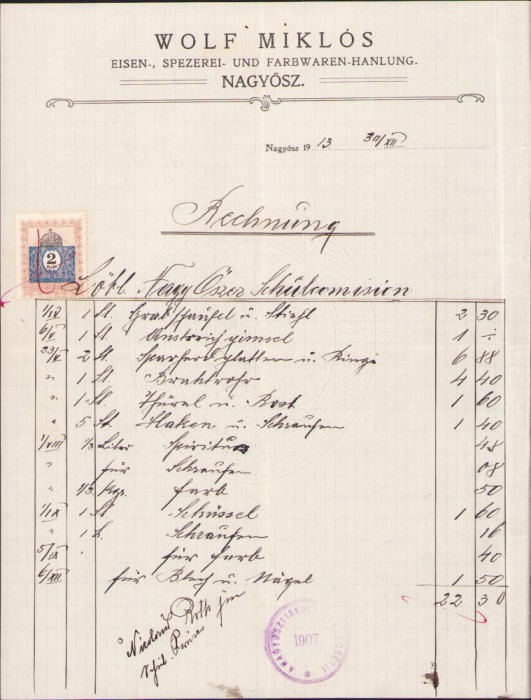 WOLF MIKLÓS
EISEN-, SPEZEREI- UND FARBWAREN-HANLUNG.
NAGYŐSZ.
Nagyősz 1913 30/XII
Rechnung
2
Löbl. Nagy Őszer Schulcomision
1/IV 1 St. Grabschaufel u. Stiehl 2 30
6/V 1 St. Anstreichpimsel 1 ÷
23/V 2 St. Sparherdplatten u. Ringe 6 88
" 1 St. Bratrohr 4 40
" 1 St. Thürel u. Rost 1 60
" 5 St. Haken u. Schraufen 1 40
1/VIII 1/2 Liter Spiritus 48
" für Schraufen 08
" 1/3 Kgr. Farb 50
1/IX 1 St Schüssel 1 60
" 1 Schraufen 16
5/IX für Farb 40
6/XII für Blech u. Nägel 1 50
22 30
Nicolaus Roth
Schul. Präses
1907